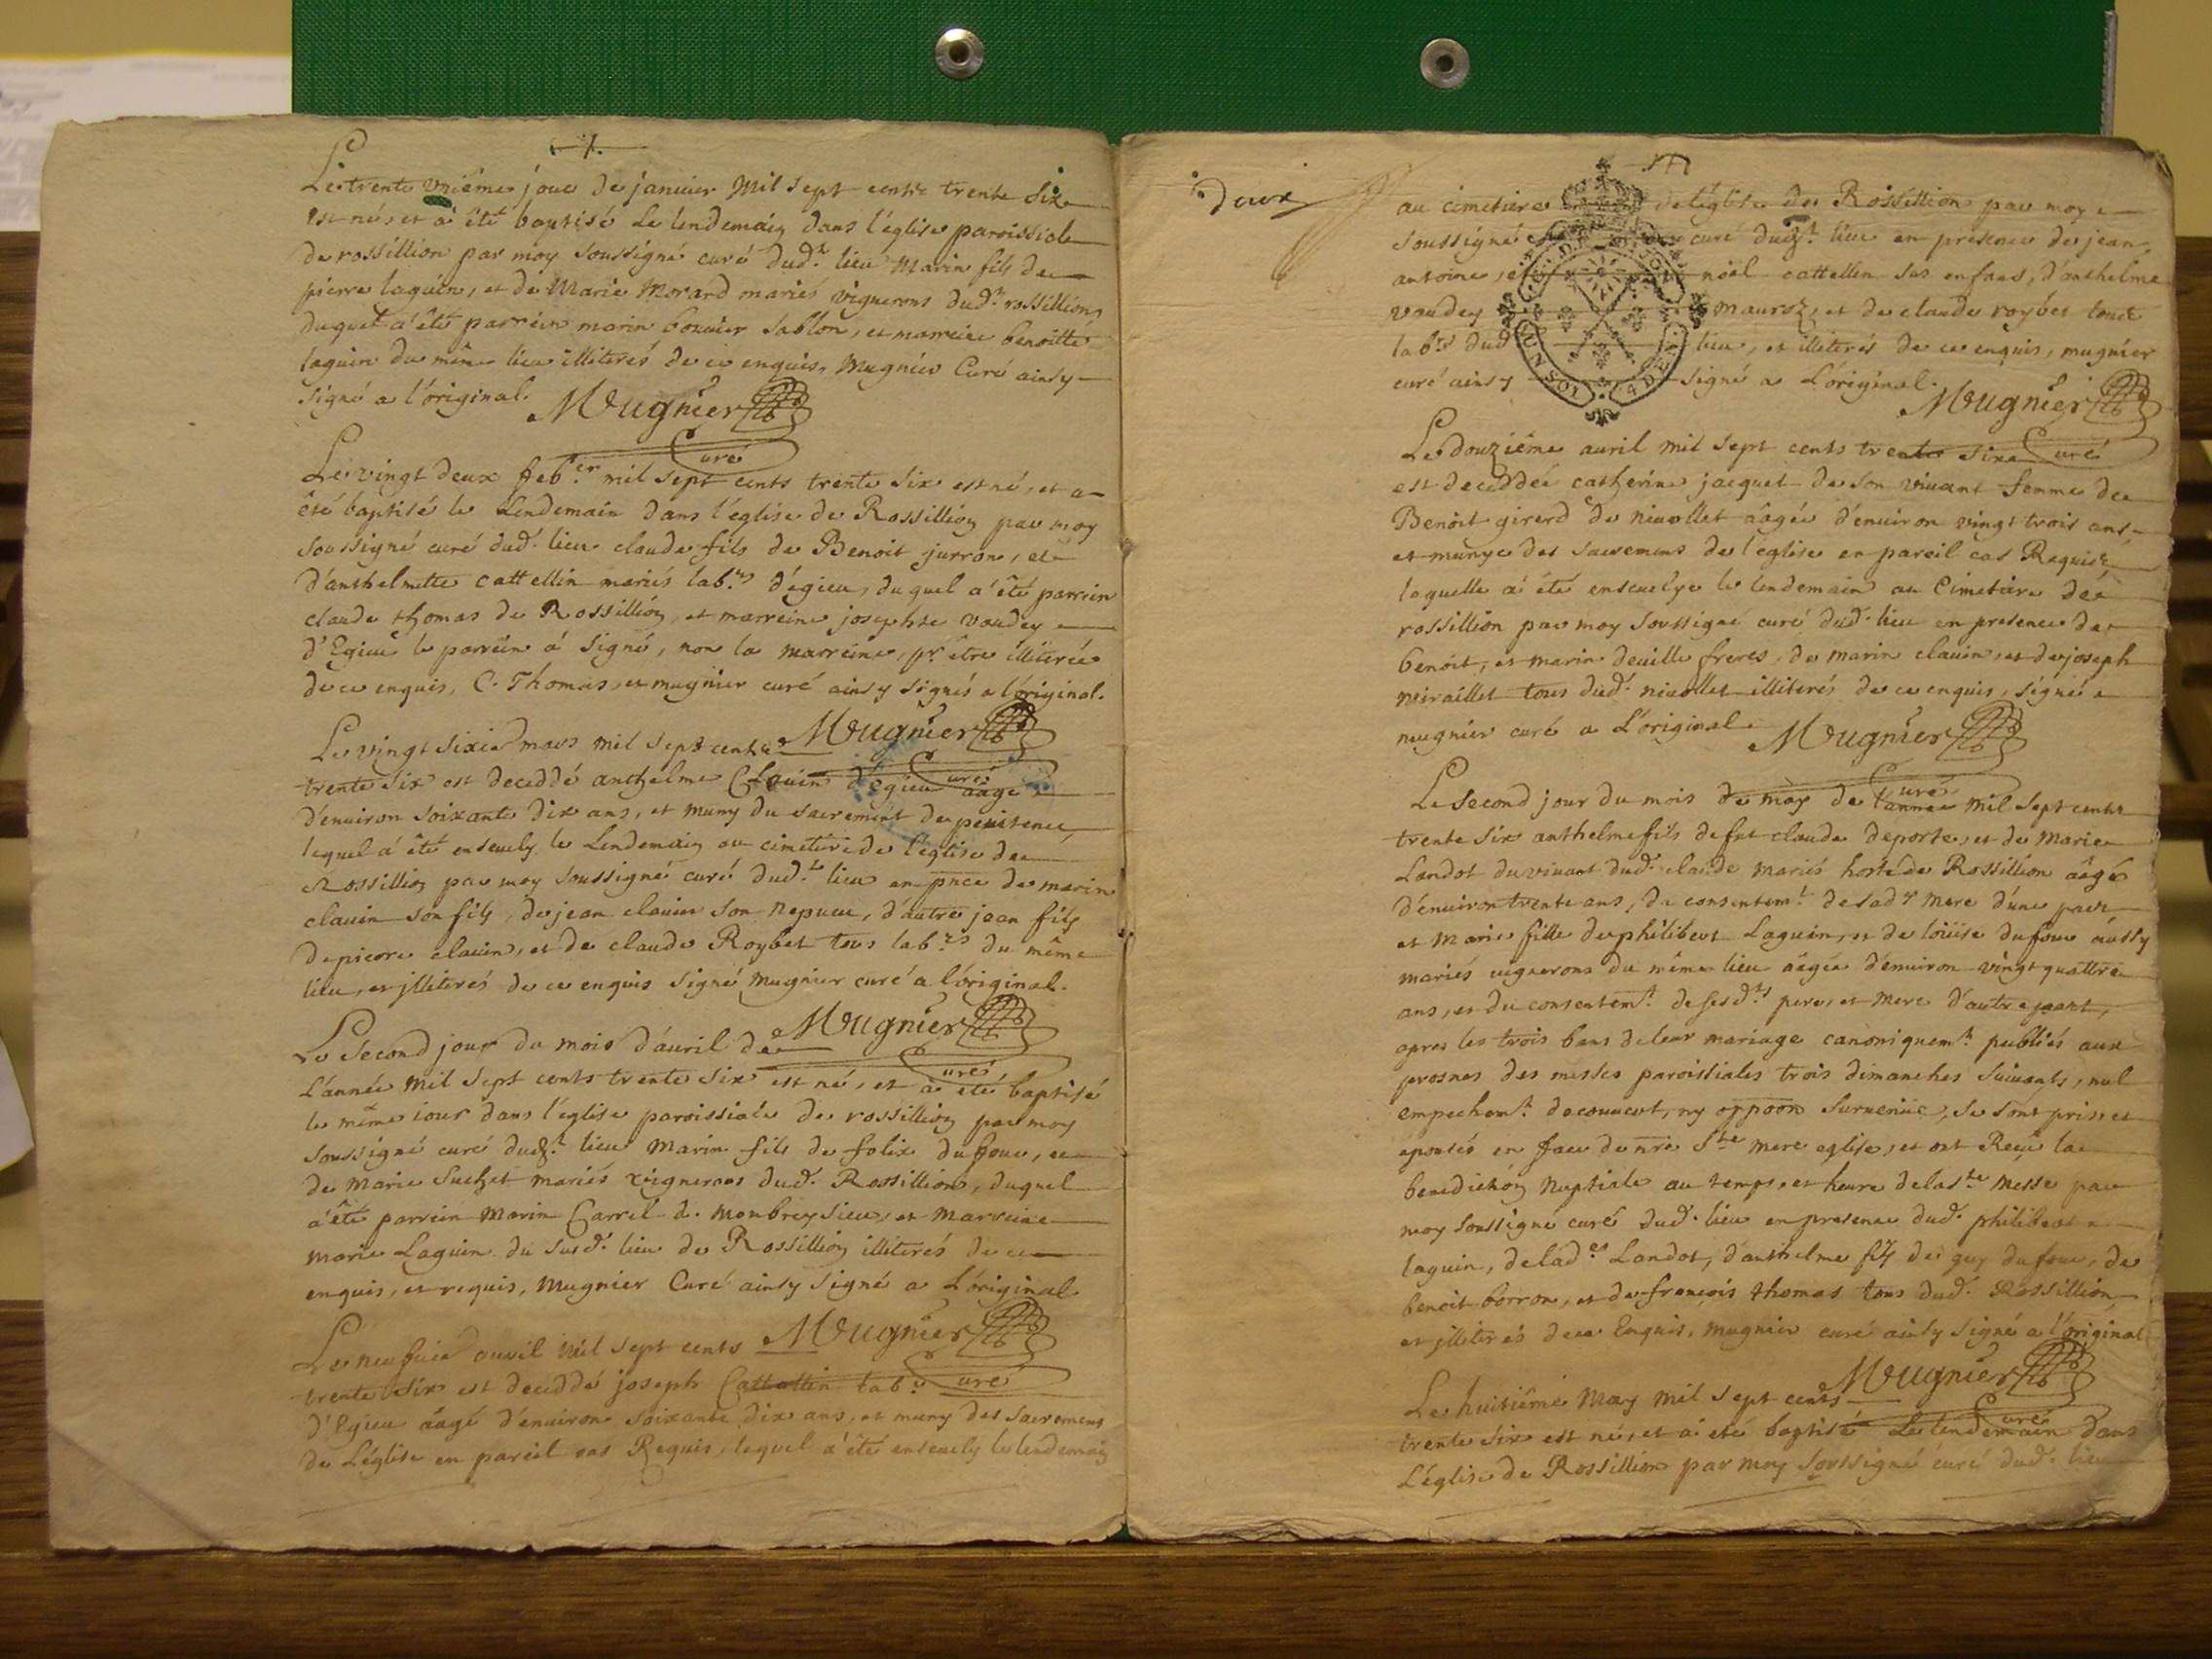 Le trente uniéme jour de januier mil sept cents trente six
est né, et a été baptisé le lendemain dans l'église paroissiale
de rossillion par moy soussigné curé dud.t lieu Marin fils de
pierre laguin, et de Marie Morand mariés vignerons dud.t rossillion
duquel a été parrein marin bouuier sablon, et marreine benoitte
laguin du même lieu illiterés de ce enquis, Mugnier Curé ainsy
signé a l'original. Mugnier
Curé
Le vingt deux feb.er mil sept cents trente six est né, et a
été baptisé le Lendemain dans l'église de Rossillion par moy
soussigné curé dud. lieu claude fils de Benoit jurron, et
d'anthelmette cattellin mariés lab.rs d'égieu, du quel a été parrein
claude thomas de Rossillion, et marreine josephte vaudey
d'Egieu le parrein a signé, non la marreine, pr. être illiterée
de ce enquis, C. Thomas, et mugnier curé ainsy signés a l'original.
Le vingt sixie mars mil sept cents Mugnier
Curé
trente six est deceddé anthelme Clauin d'Egieu âagé
d'enuiron soixante dix ans, et muny du sacrement de penitence,
lequel a été enseuely le Lendemain au cimetire de l'église de
Rossillion par moy soussigné curé dud.t lieu en pnce de marin
clauin son fils, de jean clauin son nepueu, d'autre jean fils
de pierre clauin, et de claude Roybet tous lab.rs du même
lieu, et jlliterés de ce enquis signé mugnier curé a l'original.
Le Second jour du mois d'auril de Mugnier
Curé
L'année mil sept cents trente six est né, et a été baptisé
le même iour dans l'église paroissiale de rossillion par moy
soussigné curé dud.t lieu Marin fils de felix dufour, et
de Marie Suchet mariés vignerons dud. Rossillion, duquel
a été parrein Marin Carrel de monbreysieu, et Marreine
marie Laguin du susd. lieu de Rossillion illiterés de ce
enquis, et requis, Mugnier Curé ainsy signé a L'original
Le neufuie auril mil sept cents Mugnier
Curé
trente six est deceddé joseph Cattellin lab.r
d'Egieu âagé d'enuiron soixante dix ans, et muny des sacremens
de L'église en pareil cas Requis, lequel a été enseuely le lendemain
deux
au cimetiere de l'église de Rossillion par moy
soussigné curé dud.t lieu en presence de jean
antoine, et noel cattellin ses enfans, d'anthelme
vaudey mauroz, et de claude roybet tous
lab.rs dud lieu, et illiterés de ce enquis, mugnier
curé ainsy signé a L'original. Mugnier
Curé
UN SOL 4 DEN
Le douziéme auril mil sept cents trente six
est deceddée catherine jacquet de son viuant femme de
Benoit girerd de niuollet âagée d'enuiron vingt trois ans
et munye des sacremens de l'église en pareil cas Requis,
laquelle a été enseuelye le lendemain au Cimetiere de
rossillion par moy soussigné curé dud. lieu en presence de
benoit, et marin deuille freres, de marin clauin, et de joseph
miraillet tous dud. niuollet illiterés de ce enquis, signé
mugnier curé a L'original Mugnier
Curé
Le second jour du mois de may de l'année mil sept cents
trente six anthelme fils de fut claude deporte, et de Marie
Landot du viuant dud. claude mariés hoste de Rossillion âagé
d'enuiron trente ans, du consentem.t de lad.e mere d'une part
et Marie fille de philibert Laguin, et de loüise dufour aussy
mariés vignerons du même lieu âagée d'enuiron vingt quattre
ans, et du consentem.t de sesd.ts pere, et mere d'autre part,
apres les trois bans de leur mariage canoniquem.t publiés aux
prosnes des messes paroissiales trois dimanches suiuants, nul
empechem.t decouuert, ny oppoon suruenüe, se sont pris et
epousés en face de nre Ste mere eglise, et ont Receu la
benediction Nuptiale au temps, et heure de la Ste Messe par
moy soussigné curé dud. lieu en presence dud. philibert
laguin, de lad.e Landot, d'anthelme fils de guy dufour, de
benoit borron, et de françois thomas tous dud. Rossillion
et jlliterés de ce Enquis, mugnier curé ainsy signé a l'original
Mugnier
Curé
Le huitiéme May mil sept cents
trente six est né, et a été baptisé Le lendemain dans
L'église de Rossillion par moy soussigné curé dud. lieu